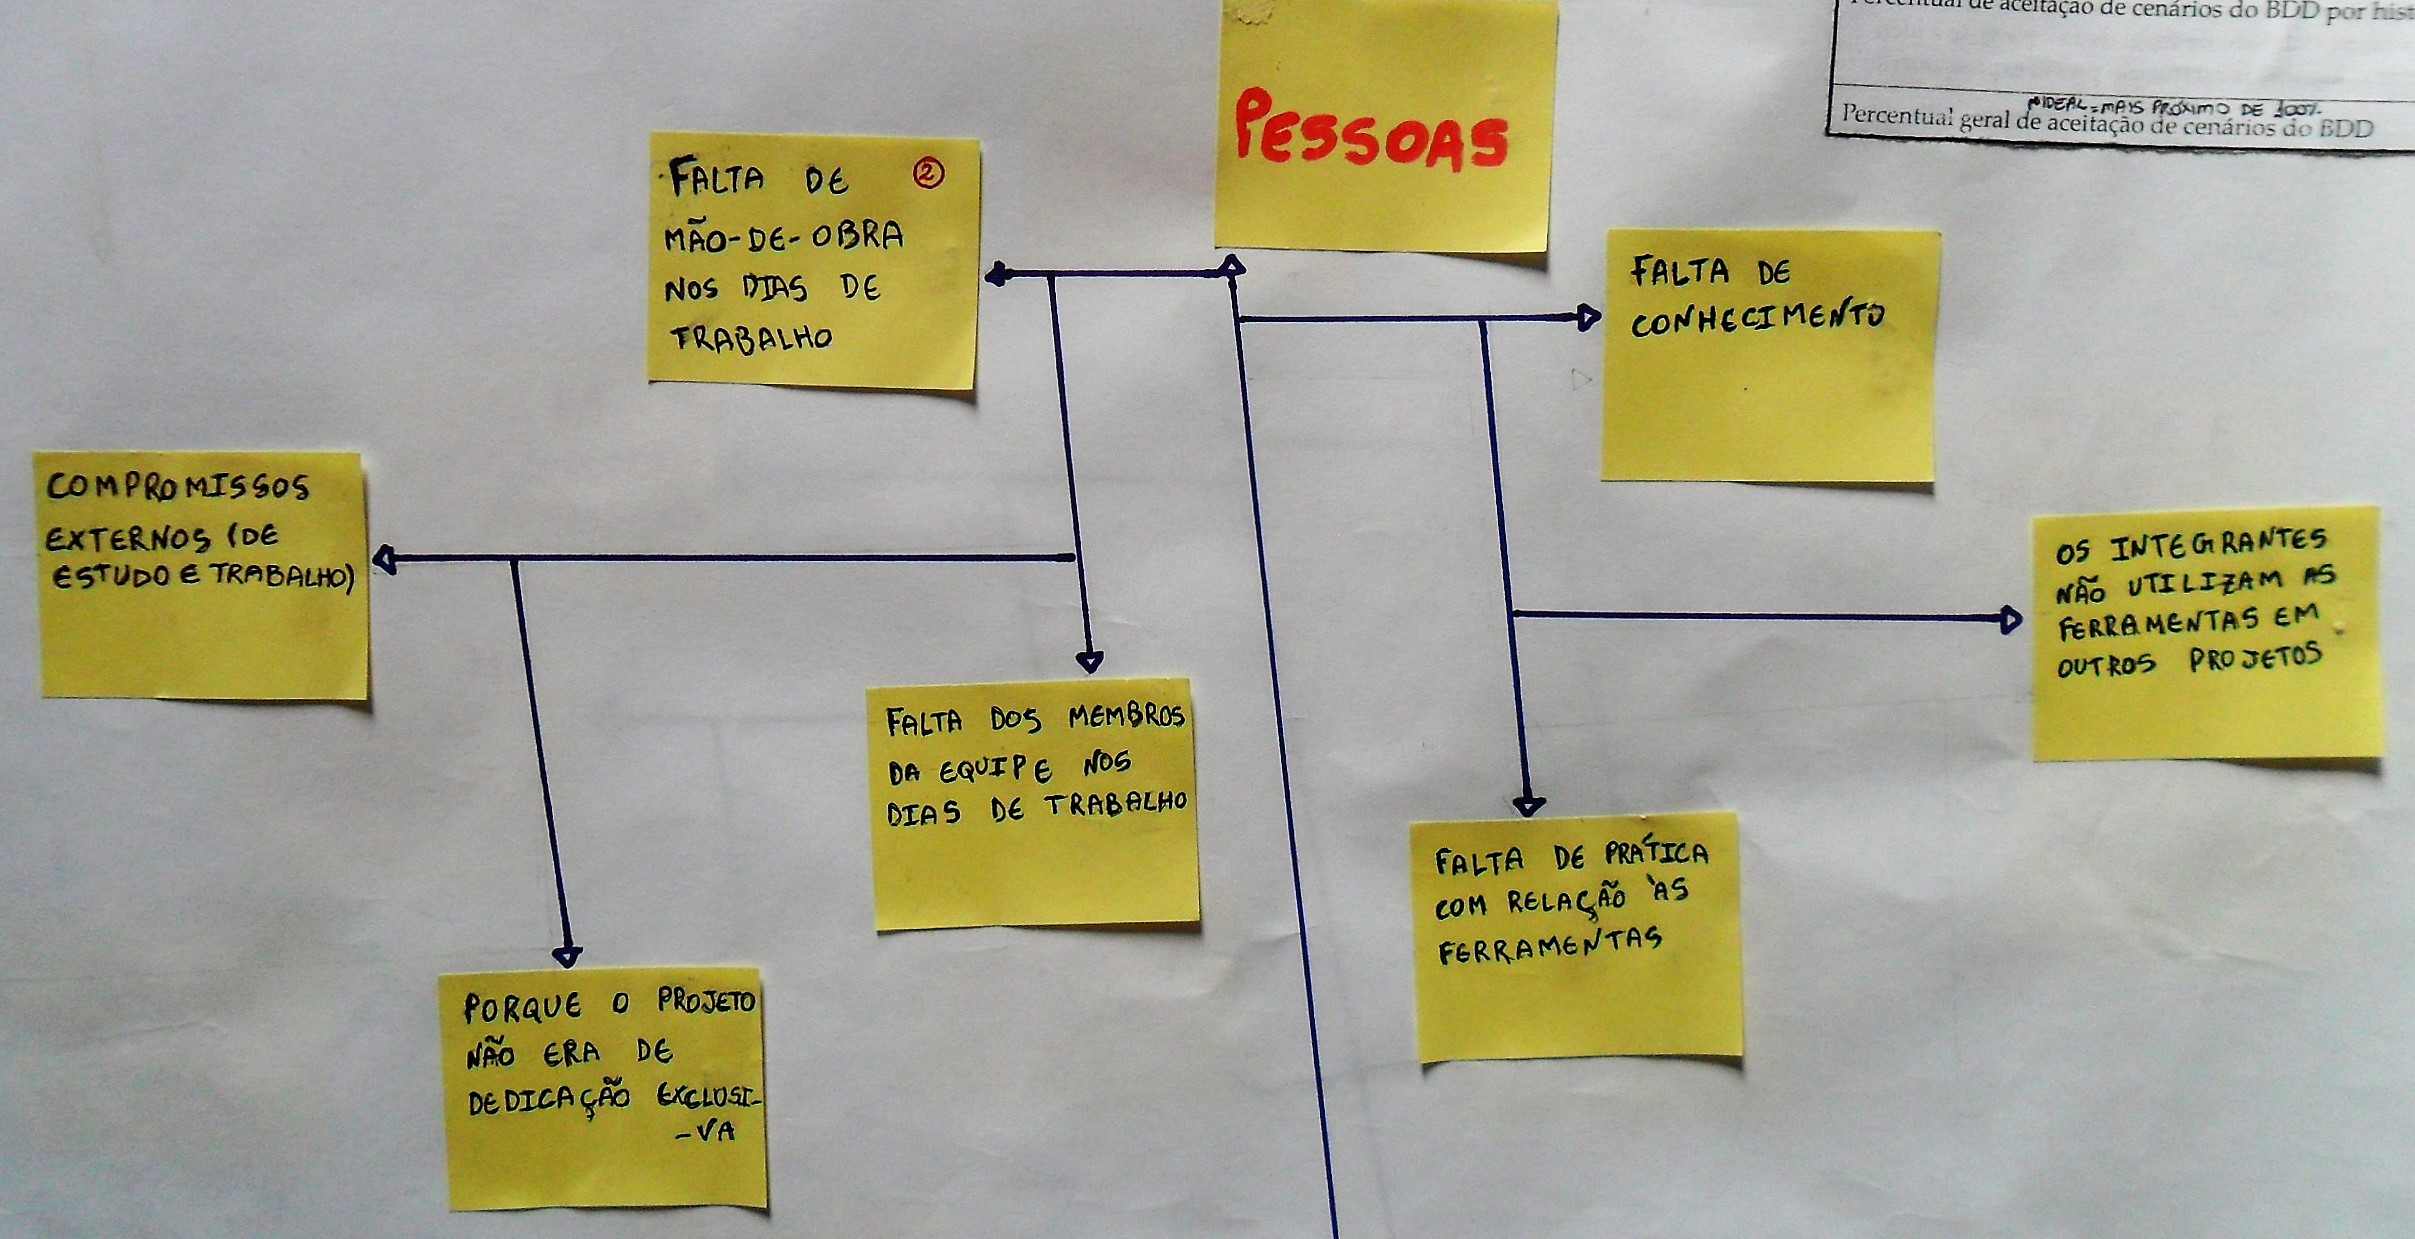 de aceitação de cenários do BDD por hist
IDEAL = MAIS PRÓXIMO DE 100%.
Percentual geral de aceitação de cenários do BDD
PESSOAS
FALTA DE ②
MÃO-DE-OBRA
NOS DIAS DE
TRABALHO
FALTA DE
CONHECIMENTO
COMPROMISSOS
EXTERNOS (DE
ESTUDO E TRABALHO)
OS INTEGRANTES
NÃO UTILIZAM AS
FERRAMENTAS EM
OUTROS PROJETOS
FALTA DOS MEMBROS
DA EQUIPE NOS
DIAS DE TRABALHO
FALTA DE PRÁTICA
COM RELAÇÃO ÀS
FERRAMENTAS
PORQUE O PROJETO
NÃO ERA DE
DEDICAÇÃO EXCLUSI-
-VA